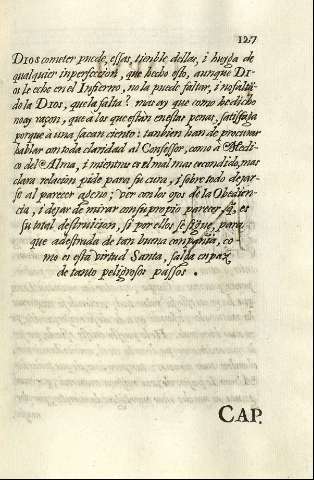 127
DIOS cometer puede, essas tiemble dellas, i huyga de
qualquier inperfeccion, que hecho esto, aunque DI-
OS le eche en el Infierno, no la puede faltar, i no faltã-
dola DIOS, que la falta? mas ay que como he dicho
no ay raçon, que a los que están en estas penas, satisfaga
porque à una sacan ciento: tanbien han de procurar
hablar con toda claridad al Confessor, como à Medi-
co del Alma, i mientras es el mal mas escondido, mas
clara relacion pide para su cura, i sobre todo dejar-
se al parecer ageno; ver con los ojos de la Obedien-
cia, i dejar de mirar con su propio parecer, q̃ es
su total destruicion, si por ellos se sigue, para
que adestrada de tan buena conpañia, co-
mo es esta virtud Santa, salga en paz
de tanto peligrosos passos.
CAP.